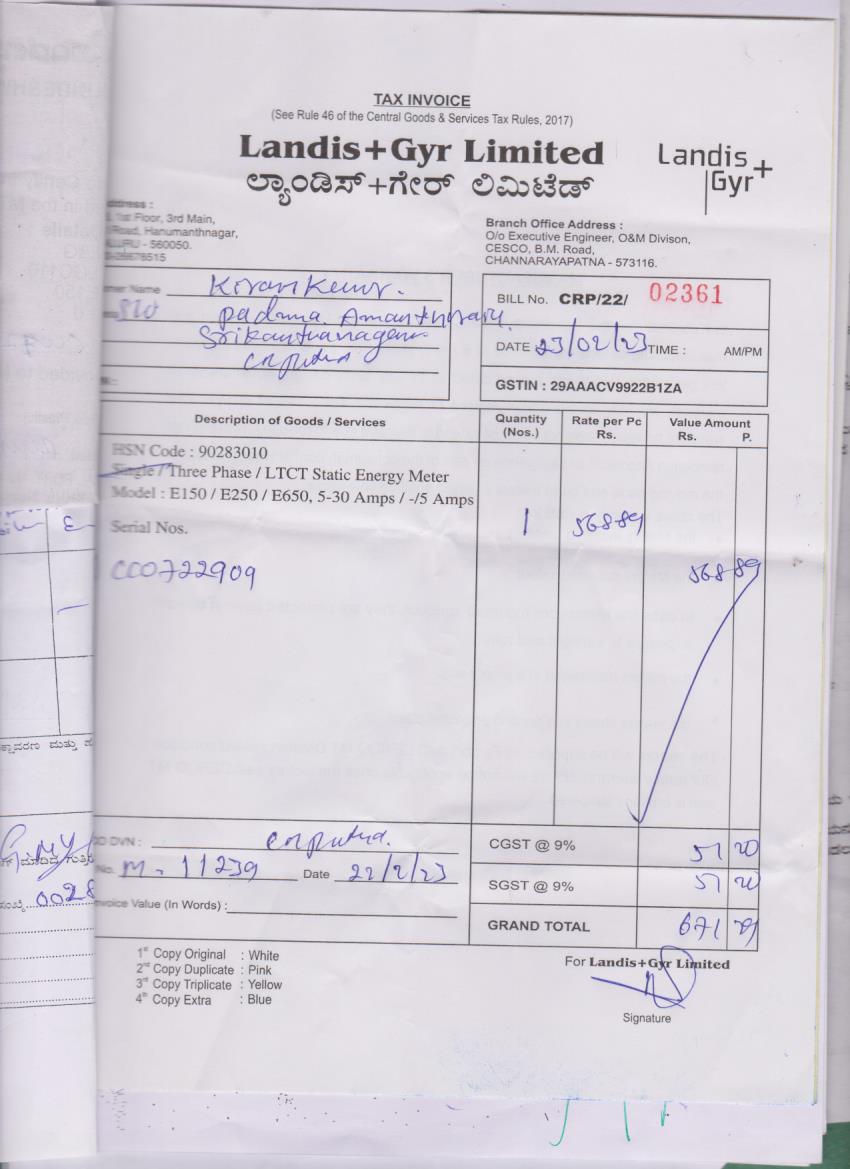 TAX INVOICE
(See Rule 46 of the Central Goods & Services Tax Rules, 2017)
Landis+Gyr Limited
ಲ್ಯಾಂಡಿಸ್+ಗೇರ್ ಲಿಮಿಟೆಡ್
Landis+
Gyr
Floor, 3rd Main,
Road, Hanumanthnagar,
- 560050.
Branch Office Address :
O/o Executive Engineer, O&M Divison,
CESCO, B.M. Road,
CHANNARAYAPATNA - 573116.
Name
S/o
padma
BILL No. CRP/22/ 02361
DATE 23/02/23 TIME : AM/PM
GSTIN : 29AAACV9922B1ZA
Description of Goods / Services Quantity (Nos.) Rate per Pc Rs. Value Amount Rs. P.
HSN Code : 90283010
Single / Three Phase / LTCT Static Energy Meter
Model : E150 / E250 / E650, 5-30 Amps / -/5 Amps
Serial Nos. 1 568 89
CC0722909 568 89
DVN :
No. M - 11239 Date 22/2/23
Invoice Value (In Words) :
CGST @ 9% 51 20
SGST @ 9% 51 20
GRAND TOTAL 671 29
1st Copy Original : White
2nd Copy Duplicate : Pink
3rd Copy Triplicate : Yellow
4th Copy Extra : Blue
For Landis+Gyr Limited
Signature